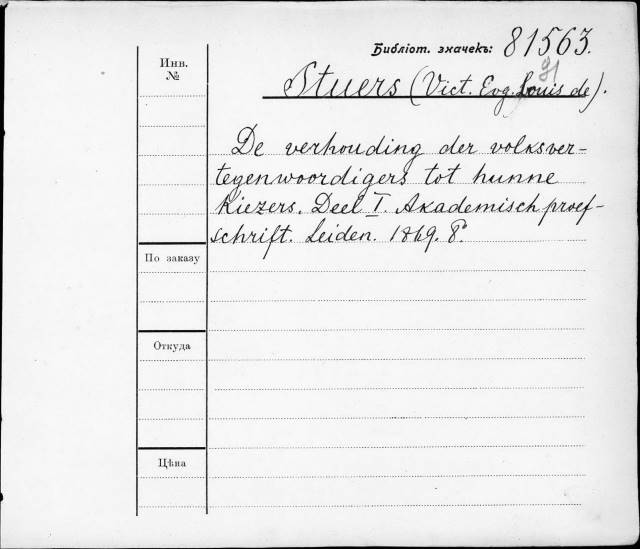 Библіот. значекъ: 81563.
91
Stuers (Vict. Eug. Louis de).
Инв.
№
De verhouding der volksver-
tegenwoordigers tot hunne
Kiezers. Deel I. Akademisch proef-
schrift. Leiden. 1869. 8°.
По заказу
Откуда
Цѣна